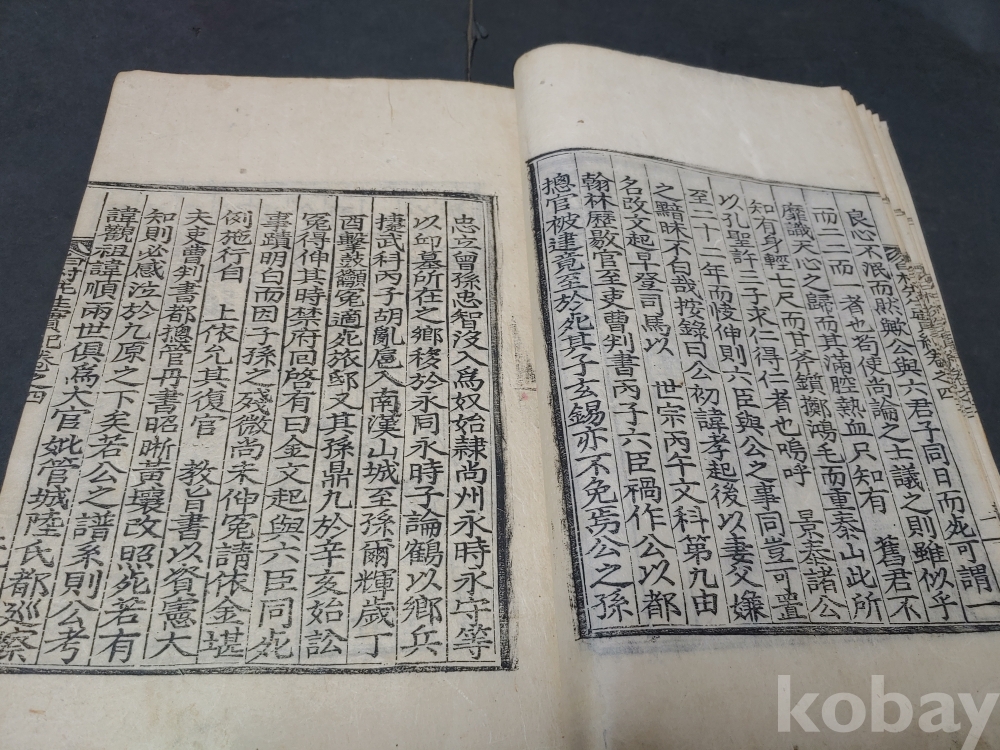 良心不泯而然歟公與六君子同日而死可謂一
而二二而一者也若使尚論之士議之則雖似乎
靡識天心之歸而其滿腔熱血只知有 舊君不
知有身輕七尺而甘斧鑕擲鴻毛而重泰山此所
以孔聖許二子求仁得仁者也嗚呼 景泰諸公
至二十二年而悛伸則六臣與公之事同豈可置
之黯昧不白哉按錄曰公初諱孝起後以妻父嫌
名改文起早登司馬以 世宗丙午文科第九由
翰林歷敭官至吏曹判書丙子六臣禍作公以都
摠官被逮竟至於死其子玄錫亦不免焉公之孫
忠立曾孫忠智沒入爲奴始隷尚州永時永守等
以邱墓所在之鄉移於永同永時子論鶴以鄉兵
捷武科丙子胡亂扈入南漢山城至孫爾輝歲丁
酉擊鼓籲冤適死旅邸又其孫鼎九於辛亥始訟
冤得伸其時禁府回啓有曰金文起與六臣同死
事蹟明白而因子孫之殘微尚未伸冤請依金堪
例施行自 上依允其復官 教旨書以資憲大
夫吏曹判書都摠管丹書昭晰黃壤改照死若有
知則必感泣於九原之下矣若公之譜系則公考
諱觀祖諱順兩世俱爲大官妣管城陸氏都巡察
先生實記卷之四
kobay